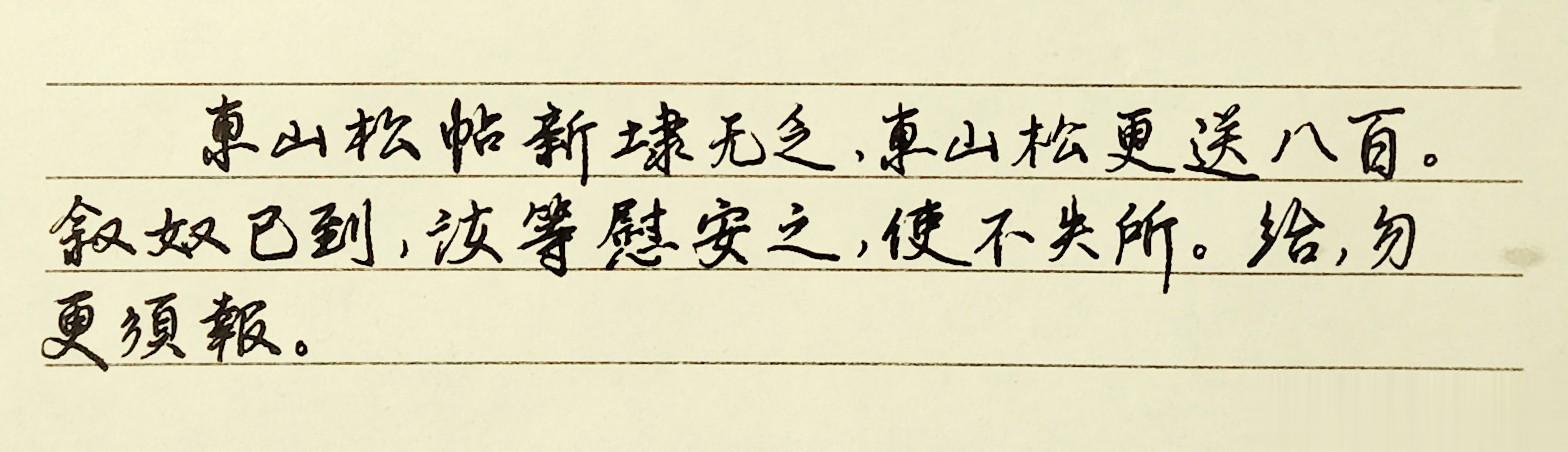 東山松帖新埭无乏,東山松更送八百。
叙奴已到,汝等慰安之,使不失所。给,勿
更須報。